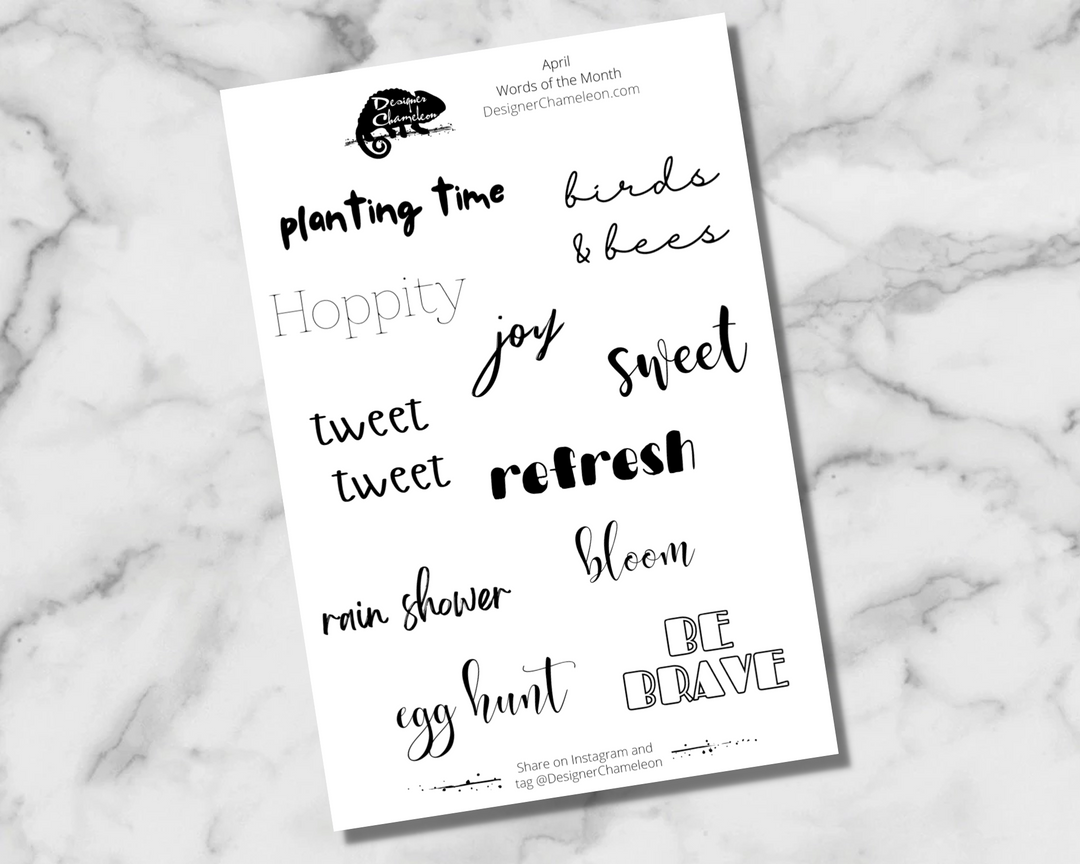 Designer
Chameleon
April
Words of the Month
DesignerChameleon.com
planting time
birds
& bees
Hoppity
joy
sweet
tweet
tweet
refresh
bloom
rain shower
BE
BRAVE
egg hunt
Share on Instagram and
tag @DesignerChameleon